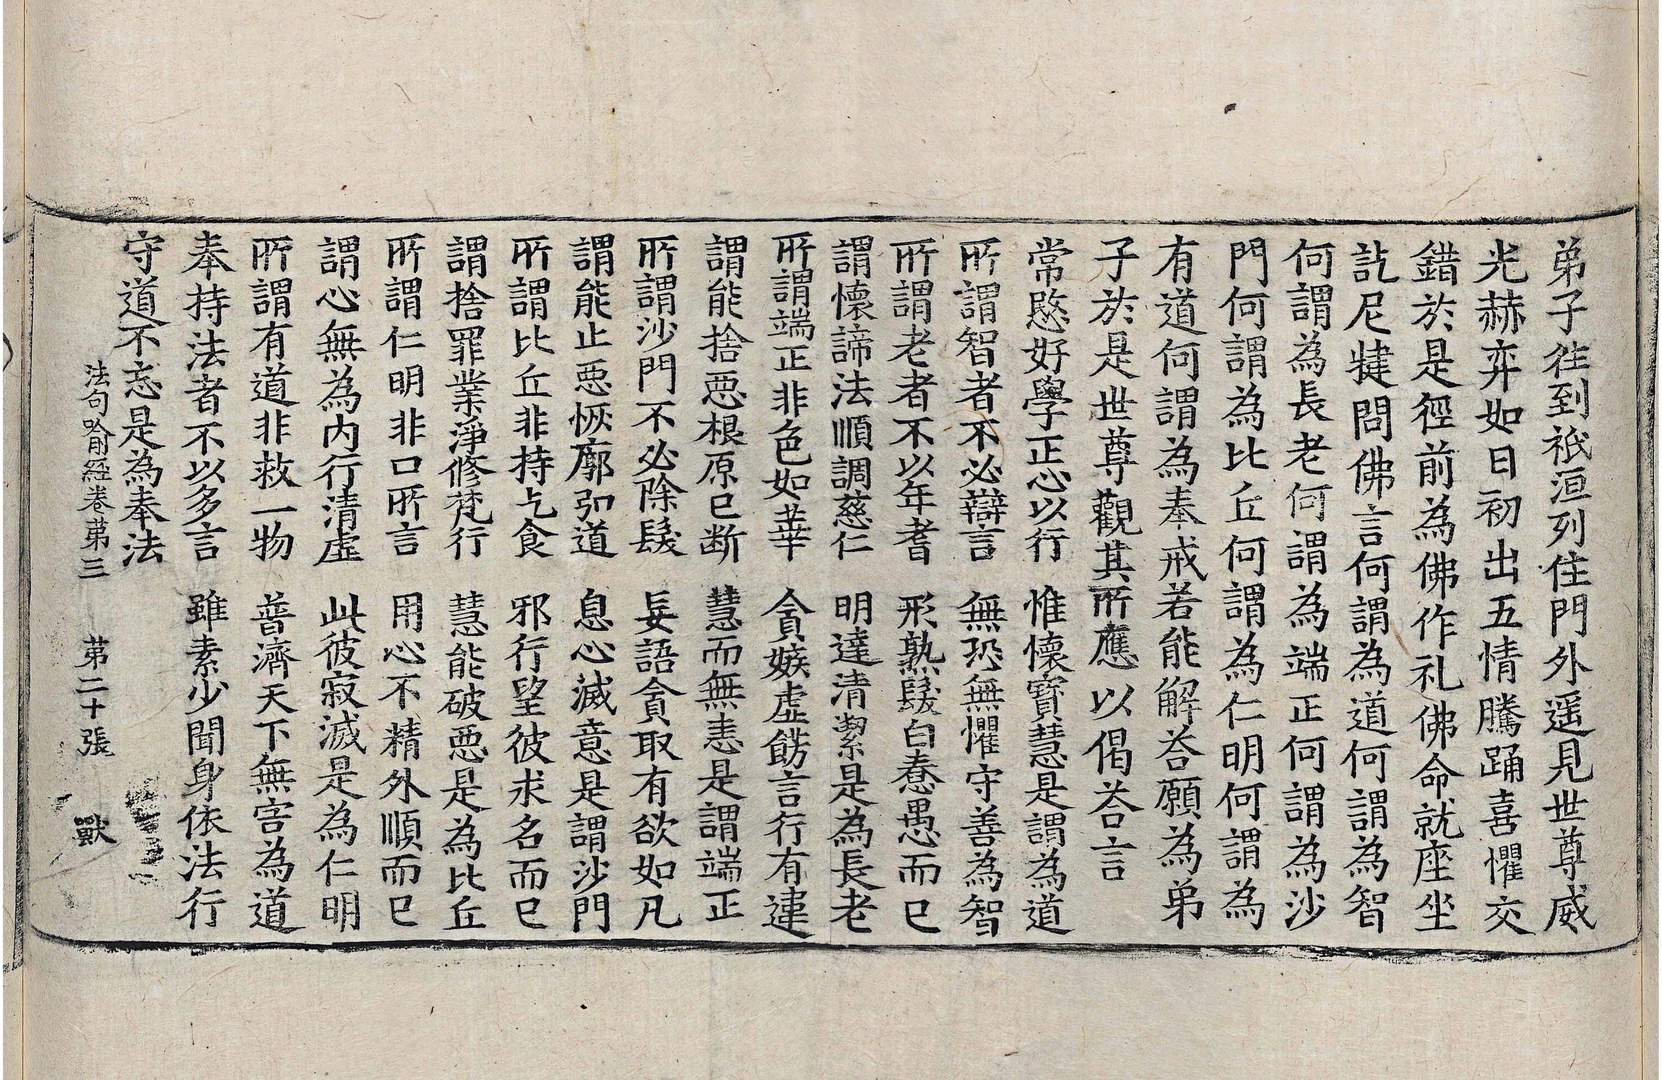 弟子往到祇洹列住門外遥見世尊威
光赫弈如日初出五情騰踊喜懼交
錯於是徑前為佛作礼佛命就座坐
訖尼揵問佛言何謂為道何謂為智
何謂為長老何謂為端正何謂為沙
門何謂為比丘何謂為仁明何謂為
有道何謂為奉戒若能解荅願為弟
子於是世尊觀其所應以偈荅言
常愍好學正心以行 惟懷寶慧是謂為道
所謂智者不必辯言 無恐無懼守善為智
所謂老者不以年耆 形熟髮白惷愚而已
謂懷諦法順調慈仁 明達清潔是為長老
所謂端正非色如華 貪嫉虛飾言行有違
謂能捨惡根原已断 慧而無恚是謂端正
所謂沙門不必除髮 妄語貪取有欲如凡
謂能止惡恢廓弘道 息心滅意是謂沙門
所謂比丘非持乞食 邪行望彼求名而已
謂捨罪業淨修梵行 慧能破惡是為比丘
所謂仁明非口所言 用心不精外順而已
謂心無為內行清虛 此彼寂滅是為仁明
所謂有道非救一物 普濟天下無害為道
奉持法者不以多言 雖素少聞身依法行
守道不忘是為奉法
法句喻經卷苐三 苐二十張 獸